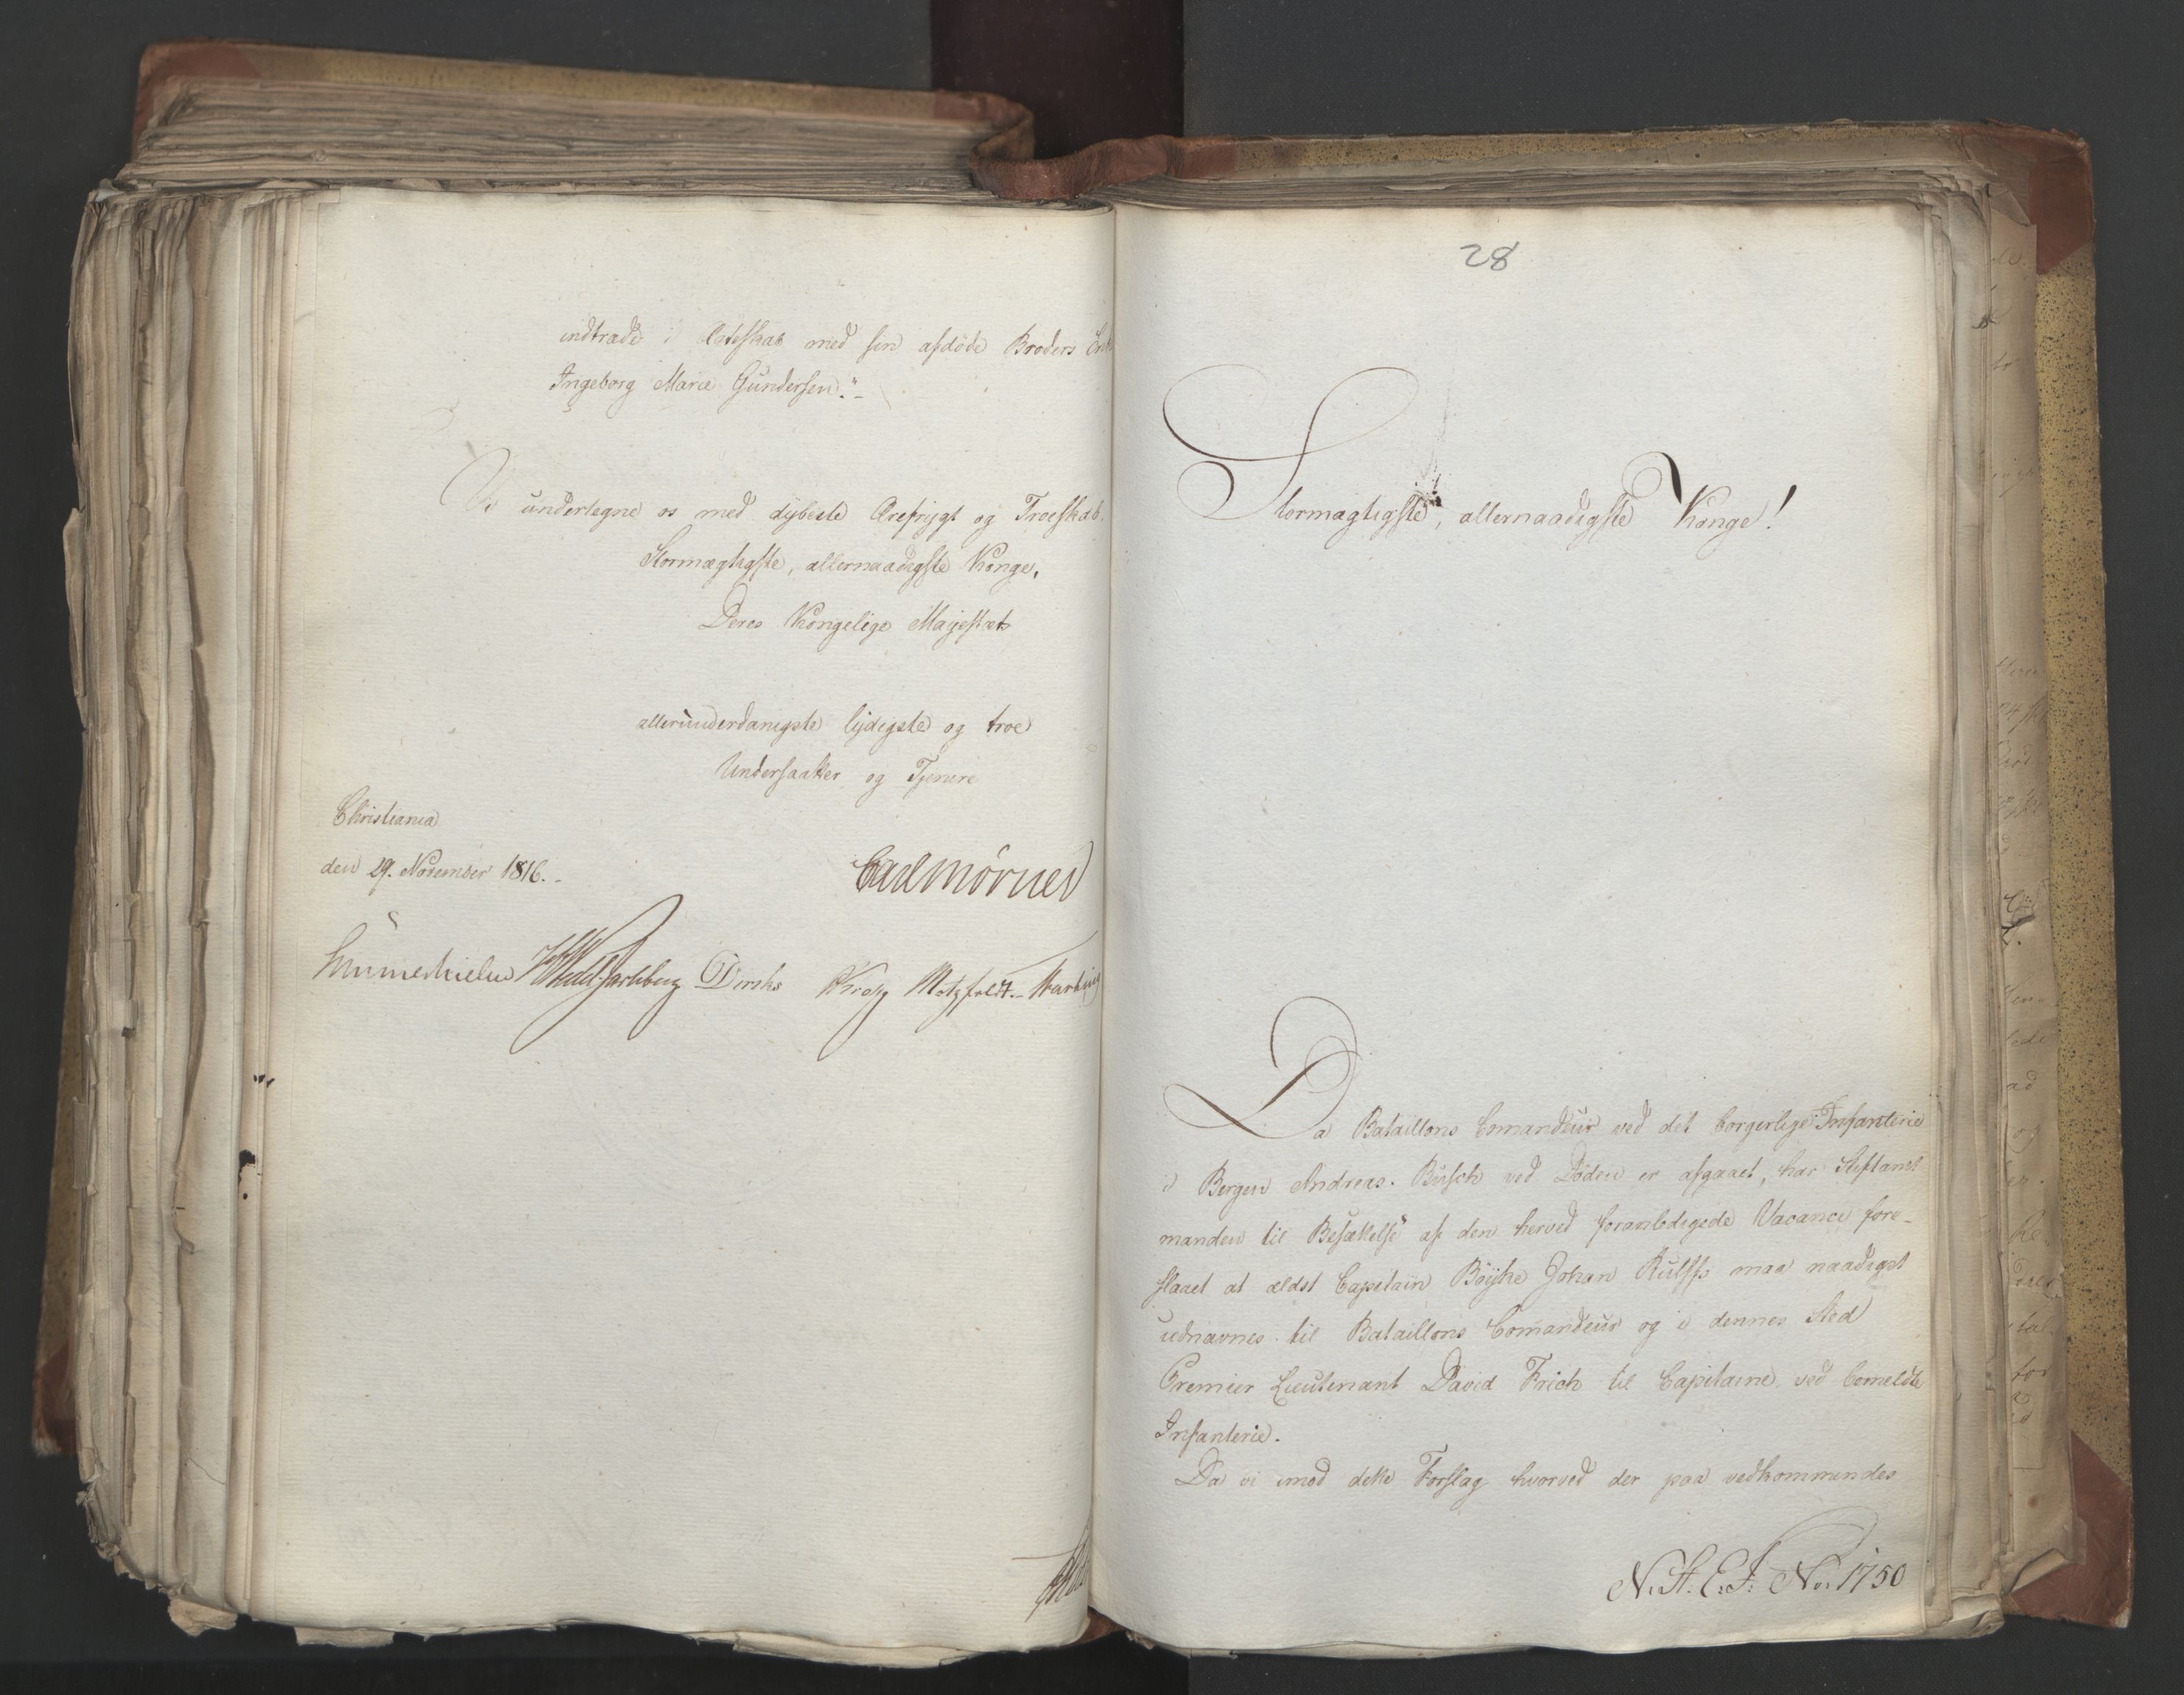 indtræde i Ægteskab med sin afdøde Broders Enke
Ingeborg Marie Gundersen."-
Vi undertegne os med dybeste Ærefrygt og Troeskab.
Stormægtigste, allernaadigste Konge,
Deres Kongelige Majestæts
allerunderdanigste lydigste og troe
Undersaatter og Tjenere
Christiania
den 29. November 1816.-
Carl Mörner
Sommerhielm HWedel Jarlsberg Diriks Krog Motzfeldt.- Hartwig
28
Stormægtigste, allernaadigste Konge!
Da Bataillons Comandeur ved det borgerlige Infanterie
i Bergen Andreas Busch ved Døden er afgaaet, har Stiftamt
manden til Besættelse af den herved foranledigede Vacance fore-
slaaet at ældst Capitain Böyhe Johan Rulffs maa naadigst
udnævnes til Bataillons Comandeur og i dennes Sted
Premier Lieutenant David Frich til Capitaine ved bemeldte
Infanterie.
Da vi imod dette Forslag hvorved der paa vedkommendes
N. St. E. J: No. 1750